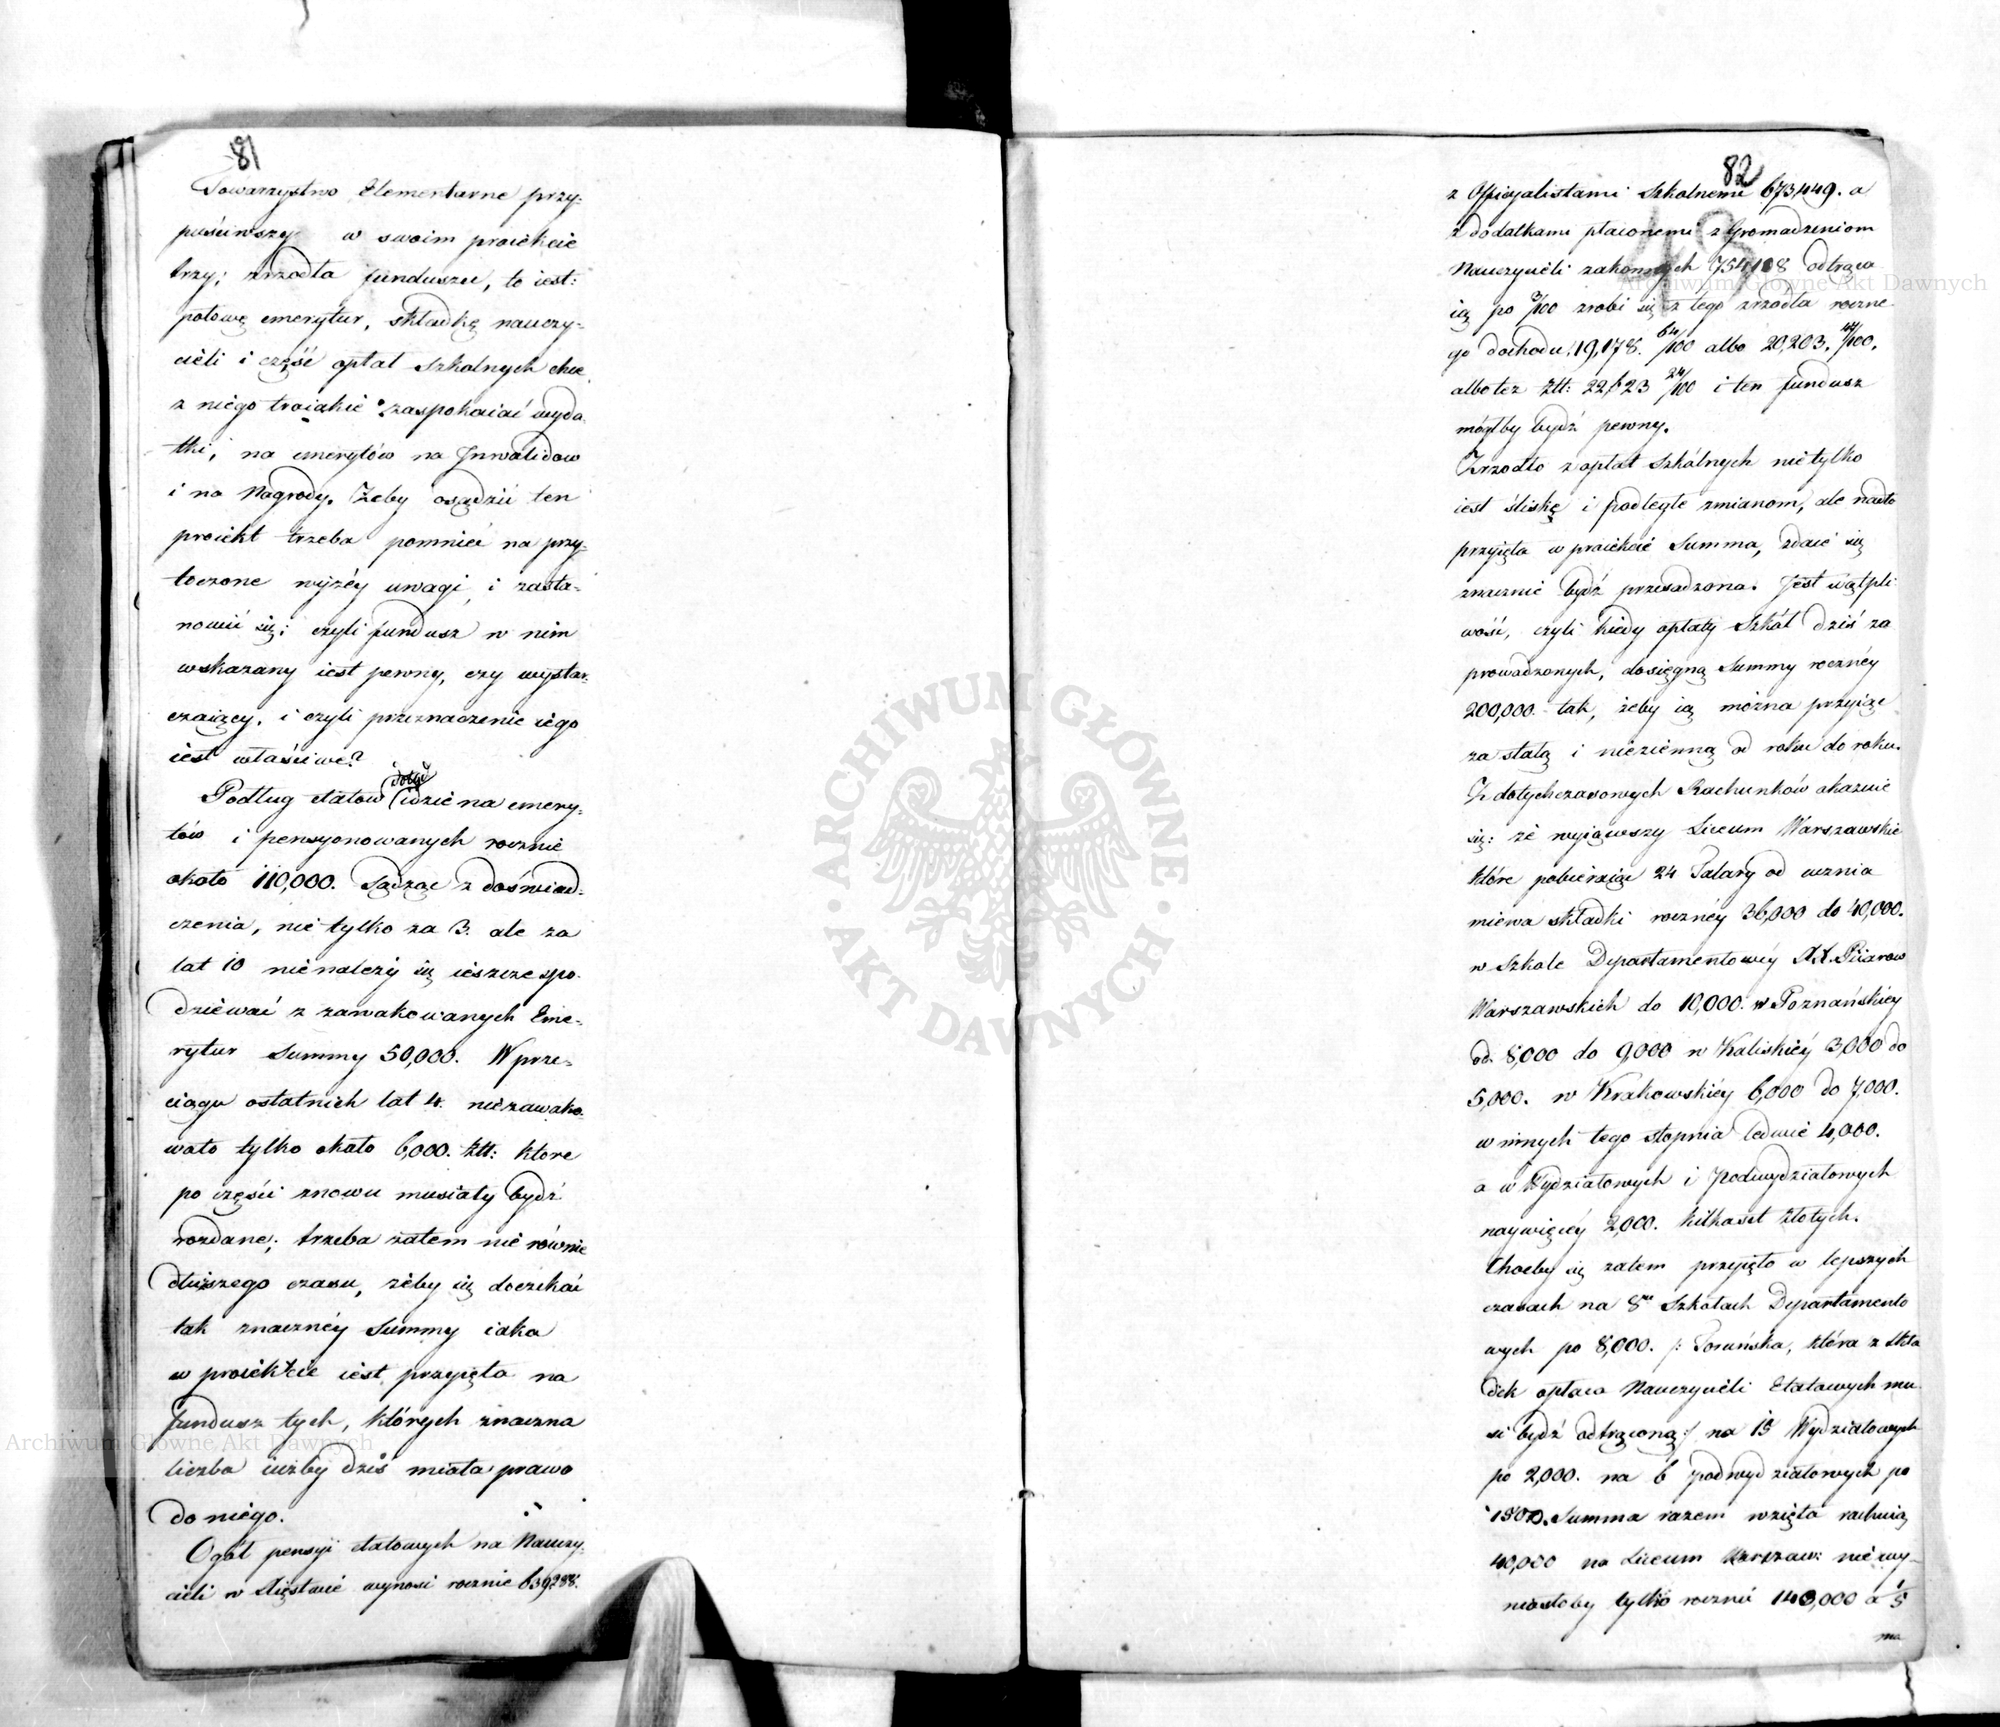 81
Towarzystwo Elementarne przy-
puściwszy w swoim proiekcie
trzy; zrzodła funduszu, to iest:
połowę emerytur, składkę nauczy-
cieli i część opłat Szkolnych chce
z niego troiakie zaspokaiać wyda
tki, na emerytów na Inwalidow
i na Nagrody. Żeby osądzić ten
proiekt trzeba pomnieć na przy-
toczone wyżéy uwagi, i zasta-
nowić się; czyli fundusz w nim
wskazany iest pewny, czy wystar-
czaiący, i czyli przeznaczenie iego
iest właściwe?
Podług etatow idzie na emery-
tów i pensyonowanych rocznie
około 110,000. Sądząc z doświad-
czenia, nie tylko za 3. ale za
lat 10 nienależy się ieszcze spo-
dziéwać z zawakowanych Eme-
rytur Summy 50,000. W prze-
ciągu ostatnich lat 4. niezawako-
wało tylko około 6,000. złł: ktore
po części znowu musiały bydź
rozdane; trzeba zatem nie równie
dłuższego czasu, żéby się doczekać
tak znacznéy Summy iaka
w proiekcie iest przyięta na
fundusz tych, których znaczna
liczba iużby dziś miała prawo
do niégo.
Ogół pensyi etatowych na Nauczy-
cieli w Xięstwie wynosi rocznie 639,288.
82
z Officyalistami Szkolnemi 673,449. a
z dodatkami płaconemi Zgromadzeniom
Nauczycieli zakonnych 754,108 odtrąca
iąc po 3/100 zrobi się z tego zrzodła roczne
go dochodu 19,178. 64/100 albo 20,203. 47/100.
albo téz złł: 22,623 24/100 i ten fundusz
mógłby bydź pewny.
Zrzodło z opłat Szkólnych nie tylko
iest śliskę i podległe zmianom, ale nadto
przyięta w proiekcie Summa, zdaie się
znacznie bydź przesadzona. Jest wątpli
wość, czyli kiedy opłaty Szkół dziś za
prowadzonych, dosięgną Summy rocznéy
200,000. tak, żeby ią można przyiąć
za stałą i niezienną od roku do roku.
Z dotychczasowych Rachunków okazuie
się: że wyiąwszy Liceum Warszawskie
które pobieraiąc 24 Talary od ucznia
miewa składki rocznéy 36,000 do 40,000.
w Szkole Departamentowéy XX. Piiarow
Warszawskich do 10,000. w Poznańskiey
od 8,000 do 9,000 w Kaliskiéy 3,000 do
5,000. w Krakowskiéy 6,000 do 7,000.
w innych tego stopnia ledwie 4,000.
a w Wydziałowych i Podwydziałowych
naywięcéy 2,000. kilkaset złotych.
Choćby się zatem przyięło w lepszych
czasach na 8miu Szkołach Departamento
wych po 8,000. /: Toruńska, która z skła
dek opłaca Nauczycieli Etatowych mu
si bydź odtrąconą:/ na 15 Wydziałowych
po 2,000. na 6 podwydziałowych po
1500. Summa razem wzięta rachuiąc
40,000 na Liceum Warszaw: nie wy-
niosłoby tylko rocznie 143,000 a 1/5
ma